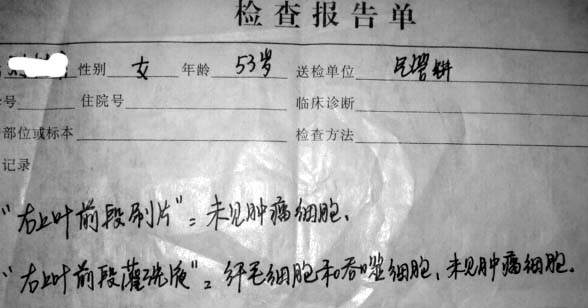 检查报告单
性别 女 年龄 53岁 送检单位
号 住院号 临床诊断
部位或标本 检查方法
记录
"右上叶前段刷片"：未见肿瘤细胞．
"右上叶前段灌洗液"：纤毛细胞和吞噬细胞，未见肿瘤细胞．